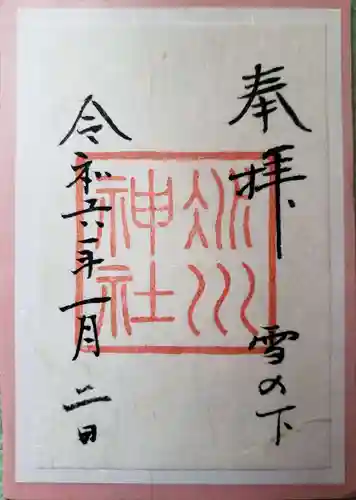 奉拝 雪の下
冰川
神社
令和六年一月二日